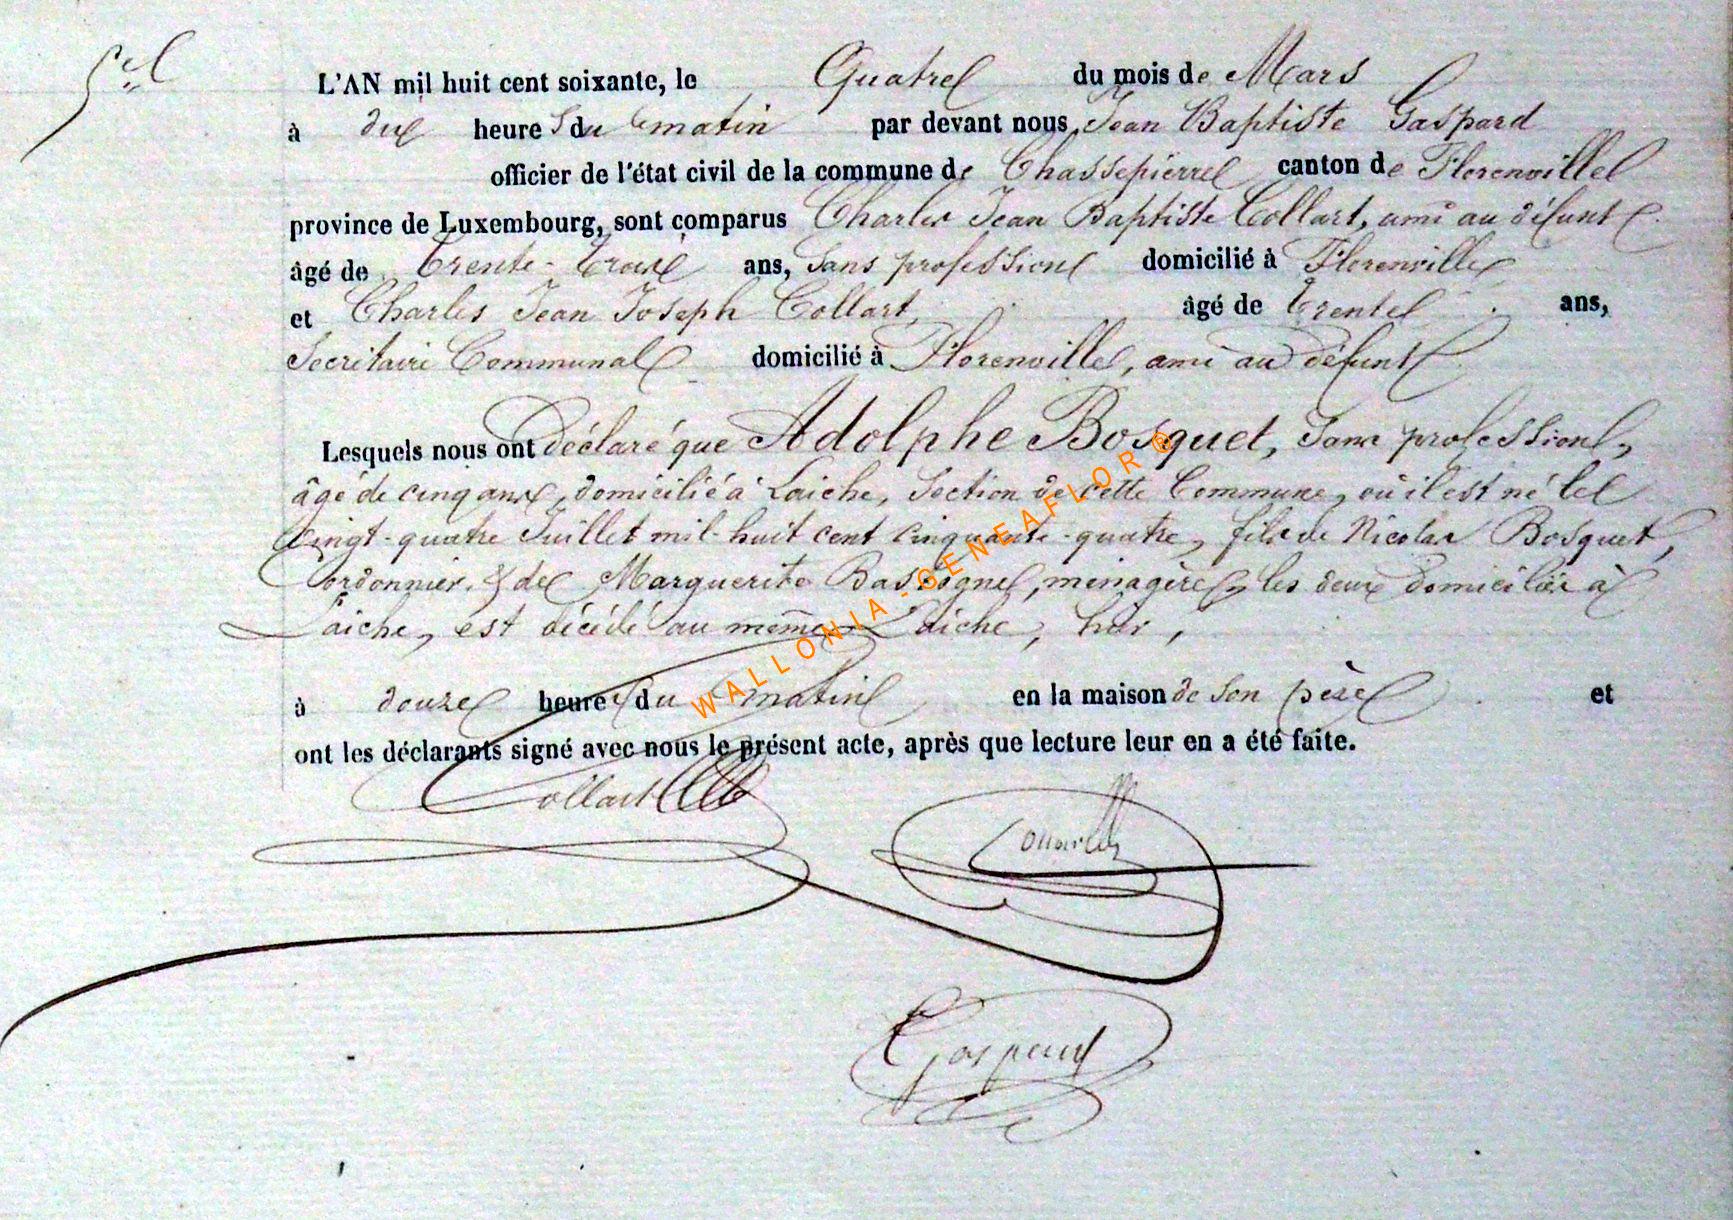 5e
L'AN mil huit cent soixante, le Quatre du mois de Mars
à dix heures du matin par devant nous Jean Baptiste Gaspard
officier de l'état civil de la commune de Chassepierre canton de Florenville
province de Luxembourg, sont comparus Charles Jean Baptiste Collart, ami au défunt
âgé de Trente-Trois ans, Sans profession domicilié à Florenville
et Charles Jean Joseph Collart, âgé de Trente ans,
Secrétaire Communal domicilié à Florenville, ami au défunt
Lesquels nous ont déclaré que Adolphe Bosquet, Sans profession,
âgé de cinq ans, domicilié à Laiche, Section de cette Commune, où il est né le
vingt-quatre Juillet mil-huit cent cinquante-quatre, fils de Nicolas Bosquet,
Cordonnier, & de Marguerite Bastogne, ménagère, les deux domiciliés à
Laiche, est décédé au même Laiche, hier,
à douze heures du matin en la maison de son père et
ont les déclarants signé avec nous le présent acte, après que lecture leur en a été faite.
Collart
Collart
Gaspard
WALLONIA-GENEAFLOR ®